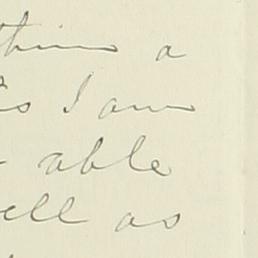 thin a
s I am
able
ell as